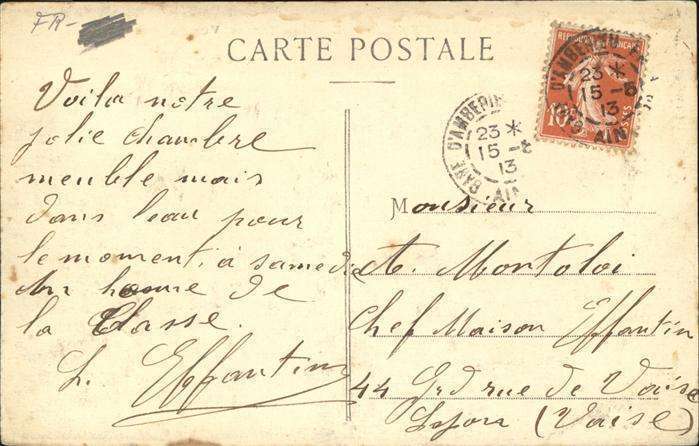 FR-
CARTE POSTALE
Voila notre
jolie chambre
meuble mais
dans l'eau pour
le moment, à samedi
un homme de
la Classe.
L. Effantin
REPUBLIQUE FRANÇAISE
10
POSTES
GARE D'AMBERIEU
23 *
15 -8
13
AIN
GARE D'AMBERIEU
23 *
15 -8
13
AIN
Monsieur
A. Montoloi
Chef Maison Effantin
44 Grd rue de Vaise
(Vaise)